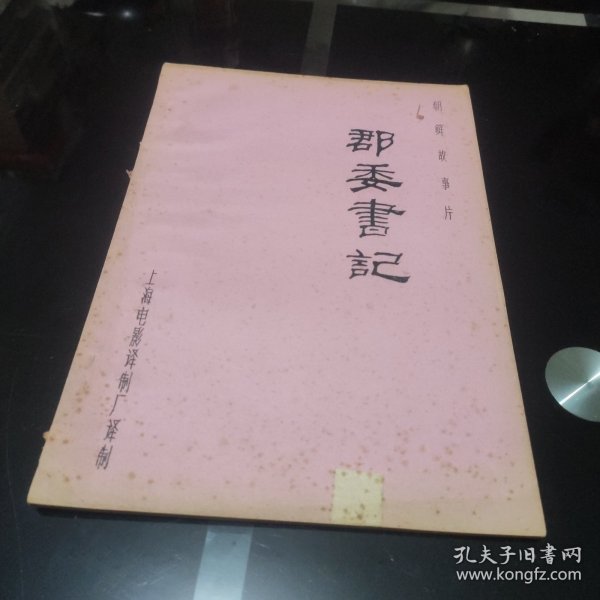 故事片
郡委書記
上海电影译制厂译制
孔夫子旧書网
www.kongfz.com